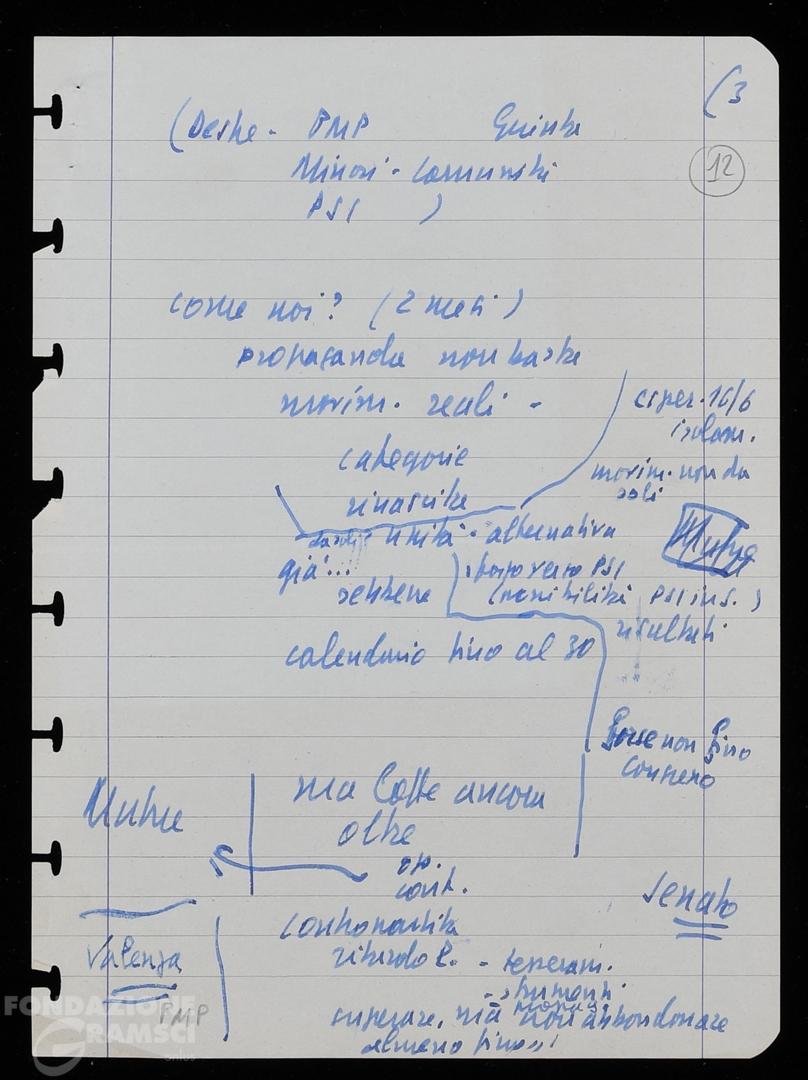 (3
12
(Destre - PMP Quinta
Minori - Comunisti
PSI )
come noi? (2 mesi)
propaganda non basta
movim. reali -
categorie
rinascita
esper. 16/6
isolam.
movim. non da
soli
unità - alternativa
già...
sebbene
verso PSI
(possibilità PSI ins.)
risultati
calendario fino al 30
Forse non fino
congresso
ma lotte ancora
oltre
op.
cont.
Senato
Valenza
PMP
controпartita
ritardo C. - tesseram.
- strumenti
superare, ma non abbandonare
almeno fino
FONDAZIONE
GRAMSCI
onlus